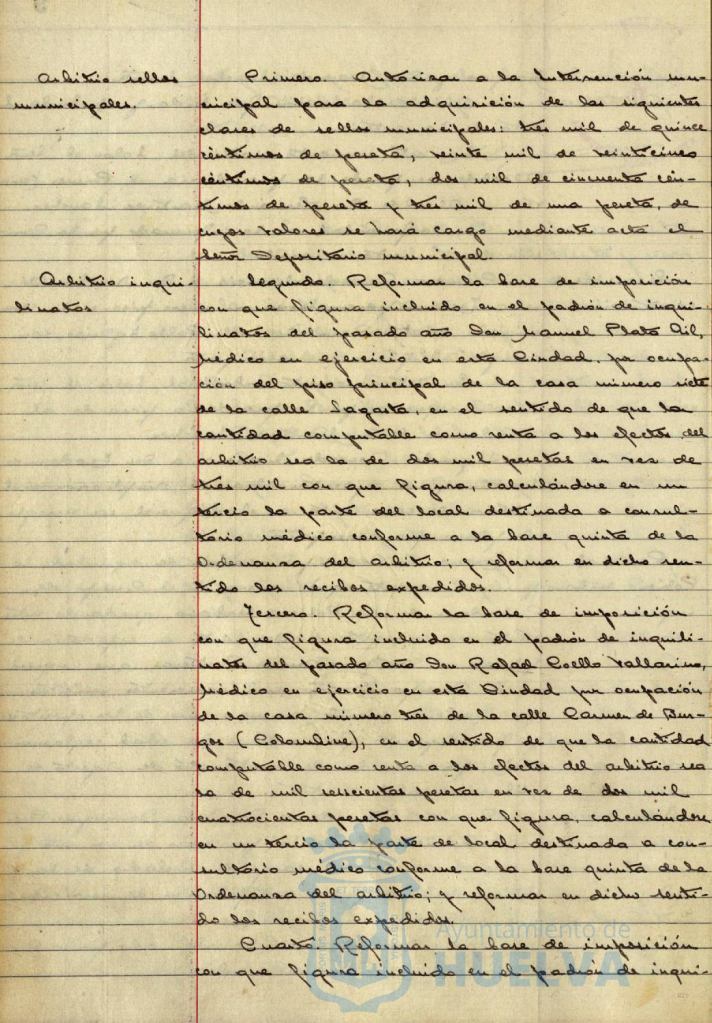 Arbitrio sellos
municipales.
Primero. Autorizar a la Intervención mu-
nicipal para la adquisición de las siguientes
clases de sellos municipales: tres mil de quince
céntimos de peseta, veinte mil de veinticinco
céntimos de peseta, dos mil de cincuenta cén-
timos de peseta y tres mil de una peseta, de
cuyos valores se hará cargo mediante acta el
señor Depositario municipal.
Arbitrio inqui-
linatos
Segundo. Reformar la base de imposición
con que figura incluido en el padrón de inqui-
linatos del pasado año Don Manuel Plata Gil,
Médico en ejercicio en esta Ciudad, por ocupa-
ción del piso principal de la casa número siete
de la calle Sagasta, en el sentido de que la
cantidad computable como renta a los efectos del
arbitrio sea la de dos mil pesetas en vez de
tres mil con que figura, calculándose en un
tercio la parte del local destinada a consul-
torio médico conforme a la base quinta de la
Ordenanza del arbitrio; y reformar en dicho sen-
tido los recibos expedidos.
Tercero. Reformar la base de imposición
con que figura incluido en el padrón de inquili-
natos del pasado año Don Rafael Coello Vallarino,
Médico en ejercicio en esta Ciudad por ocupación
de la casa número tres de la calle Carmen de Bur-
gos (Colombine), en el sentido de que la cantidad
computable como renta a los efectos del arbitrio sea
la de mil seiscientas pesetas en vez de dos mil
cuatrocientas pesetas con que figura, calculándose
en un tercio la parte de local destinada a con-
sultorio médico conforme a la base quinta de la
Ordenanza del arbitrio; y reformar en dicho senti-
do los recibos expedidos.
Cuarto. Reformar la base de imposición
con que figura incluido en el padrón de inqui-
Ayuntamiento de
HUELVA